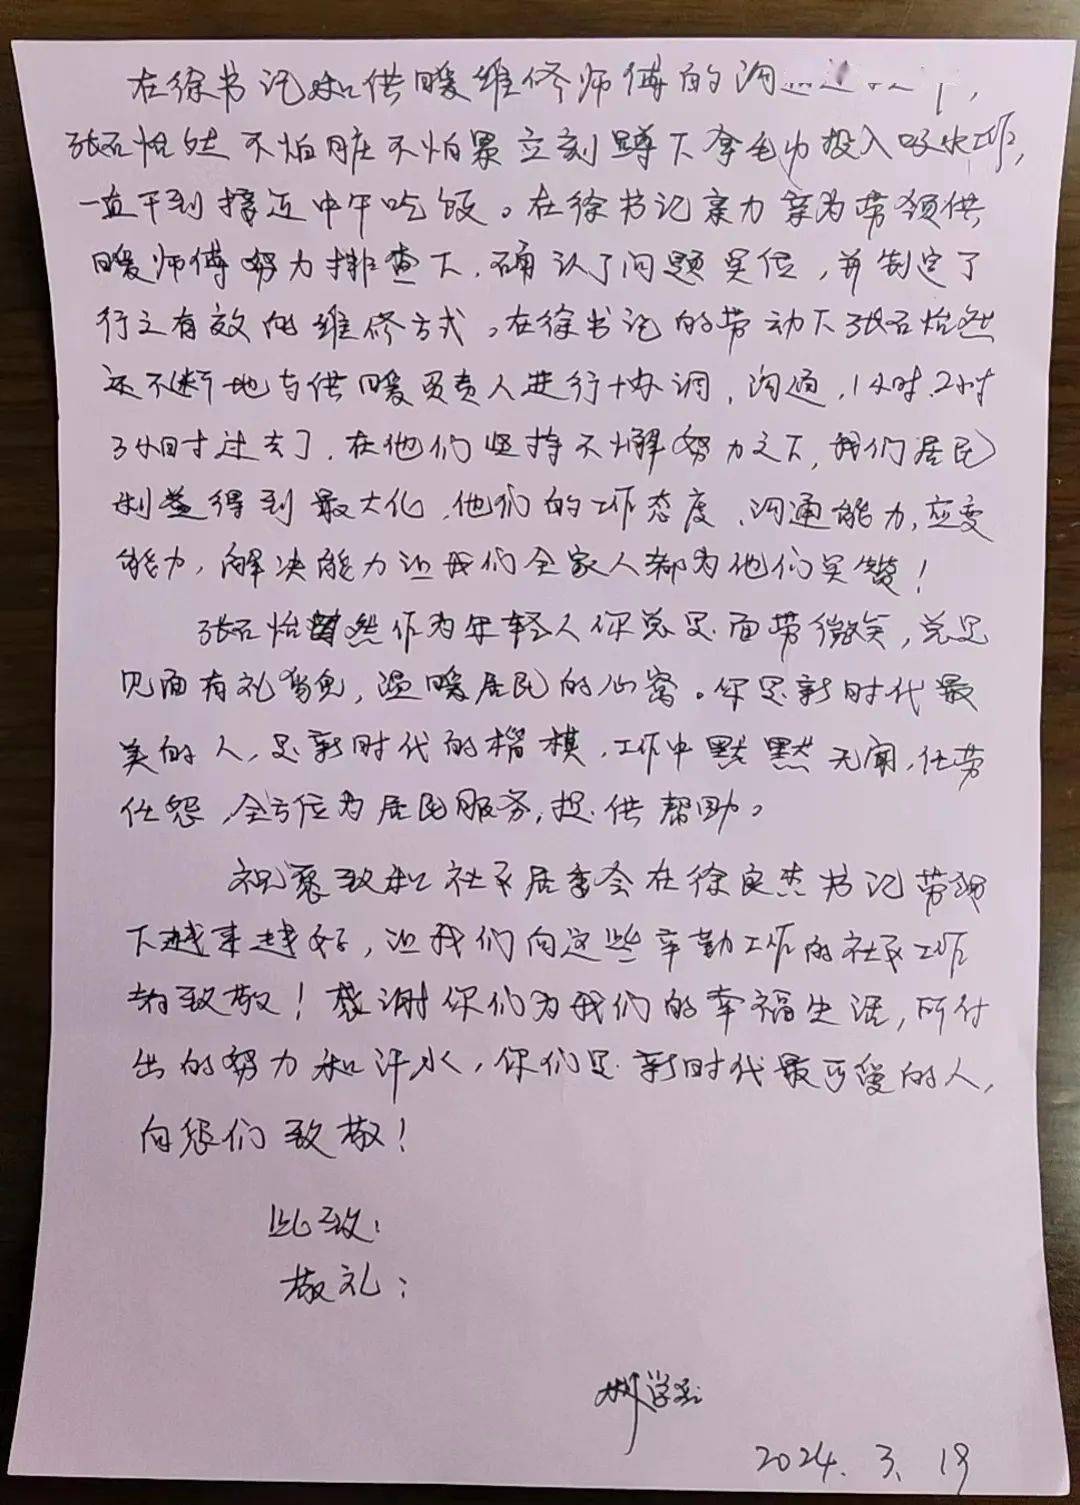 在徐书记和供暖维修师傅的沟通过程中，
张石怡然不怕脏不怕累立刻蹲下拿毛巾投入吸水工作，
一直干到接近中午吃饭。在徐书记亲力亲为带领供
暖师傅努力排查下，确认了问题定位，并制定了
行之有效的维修方式。在徐书记的带动下张石怡然
还不断地与供暖负责人进行协调，沟通，1小时、2小时
3小时过去了，在他们坚持不懈努力之下，我们居民
利益得到最大化，他们的工作态度、沟通能力，应变
能力，解决能力让我们全家人都为他们点赞！
张石怡然作为年轻人你总是面带微笑，总是
见面有礼貌，温暖居民的心窝。你是新时代最
美的人，是新时代的楷模，工作中默默无闻，任劳
任怨，全方位为居民服务，提供帮助。
祝愿致和社区居委会在徐良杰书记带领
下越来越好，让我们向这些辛勤工作的社区工作
者致敬！感谢你们为我们的幸福生活，所付
出的努力和汗水，你们是新时代最可爱的人，
向您们致敬！
此致：
敬礼：
2024.3.19